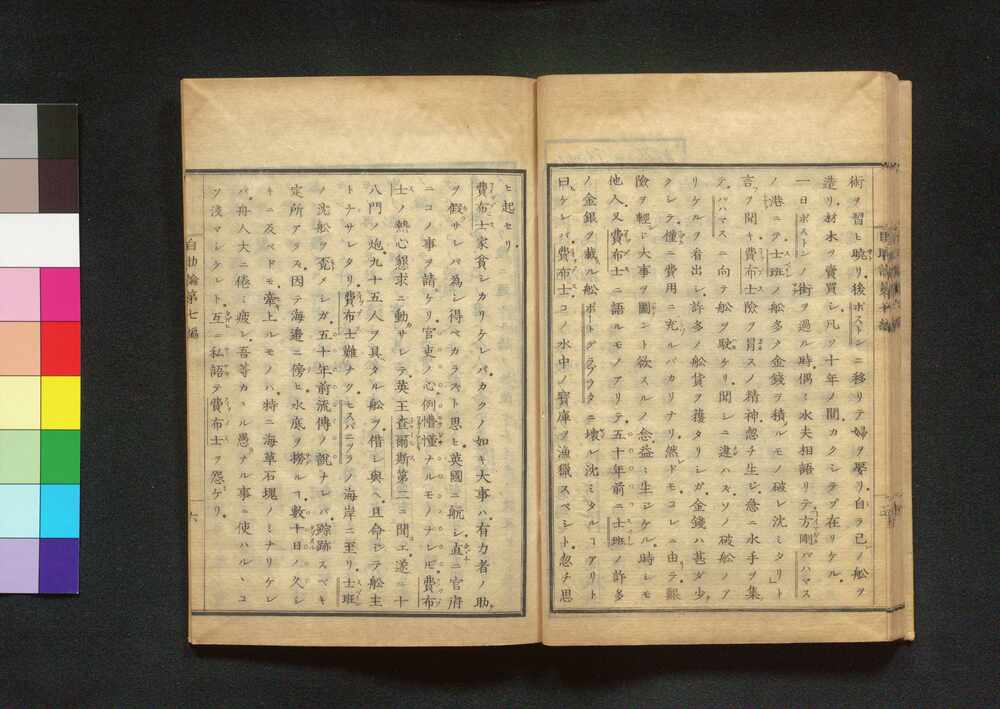 術ヲ習ヒ曉リ後ボストンニ移リテ婦ヲ娶リ自ラ己ノ船ヲ
造リ材木ヲ賣買シ凡ソ十年ノ間カクシテゾ在リケル
一日ボストンノ街ヲ過ル時偶水夫相語リテ方剛バハマス
ノ港ニテ士班ノ船多ク金錢ヲ積ルモノ破レ沈ミタリ」ト
言フヲ聞キ費布士險ヲ冒スノ精神忽チ生ジ急ニ水手ヲ集
テバハマスニ向テ船ヲ駛ケリ聞シニ違ハズソノ破船ノア
リケルヲ看出シ許多ノ船貨ヲ獲タリシガ金錢ハ甚ダ少
クシテ僅ニ費用ニ充ルバカリナリ然ドモコレニ由テ艱
險ヲ輕ジ大事ヲ圖ント欲スルノ念益ミ生ジケル時シモ
他人又費布士ニ語ルモノアリテ五十年前ニ士班ノ許多
ノ金銀ヲ載ル船ポートデラプラタニ壞レ沈ミタルヿアリト
曰ケレバ費布士コノ水中ノ寶庫ヲ漁獵スベシト忽チ思
ヒ起セリ
費布士家貧シカリケレバカクノ如キ大事ハ有力者ノ助
ヲ假サレバ爲シ得ベカラズト思ヒ英國ニ航シ直ニ官府
ニコノ事ヲ請ケリ官吏ノ心例懵懂ナルモノナレドモ費布
士ノ熱心懇求ニ動カサレテ英王査爾斯第二ニ聞エ遂ニ十
八門ノ炮九十五人ヲ具タル船ヲ借シ與ヘ且命ジテ船主
トナサレタリ費布士難ナクヒスパニヲラノ海岸ニ至リ士班
ノ沈船ヲ覓メシガ五十年前流傳ノ説ナレバ踪跡スベキ
定所アラズ因テ海邊ニ傍ヒ水底ヲ撈ルヿ數十日ノ久シ
キニ及ベドモ牽上ルモノハ特ニ海草石塊ノミナリケレ
バ舟人大ニ倦ミ疲レ吾等カヽル愚ナル事ニ使ハルヽコ
ソ淺マシケレト互ニ私語テ費布士ヲ怨ケリ
自助論第七編
六